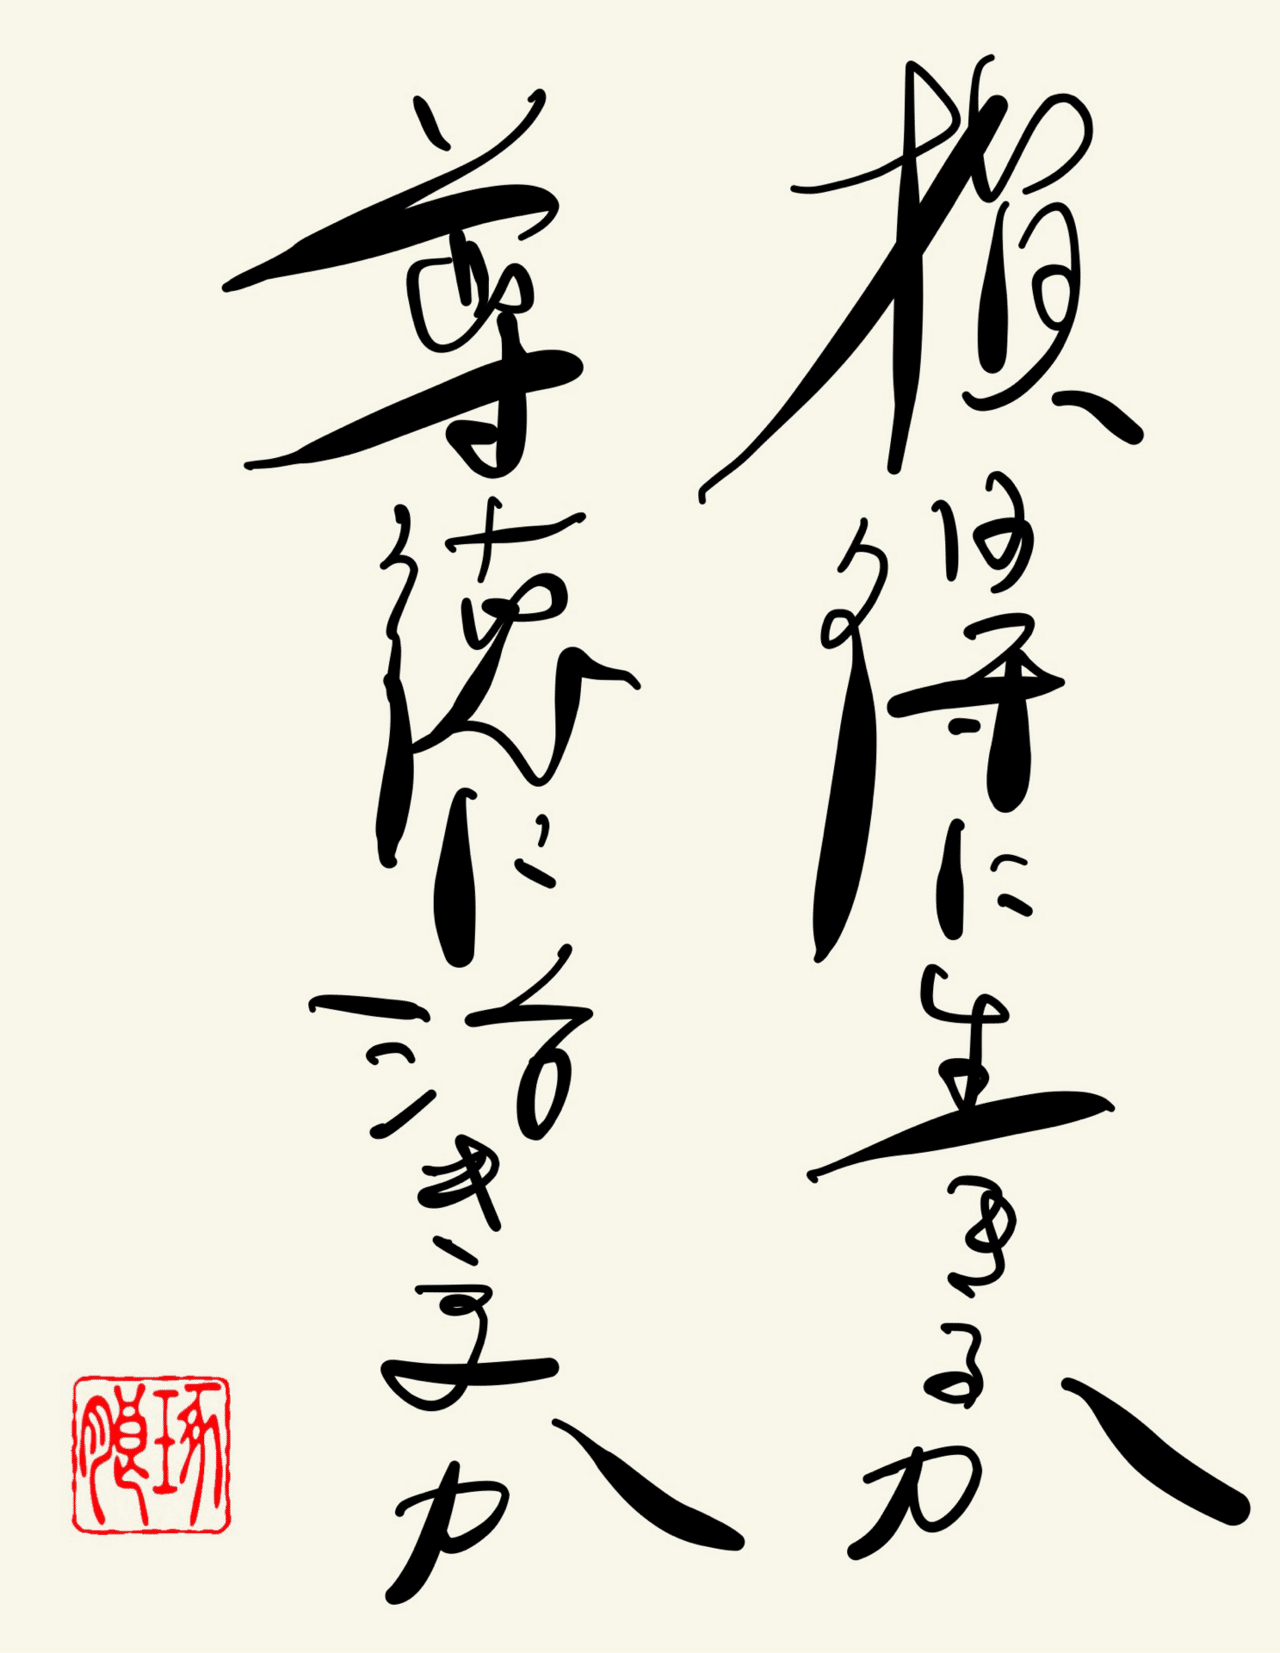 損得に生きるか
尊徳に活きるか